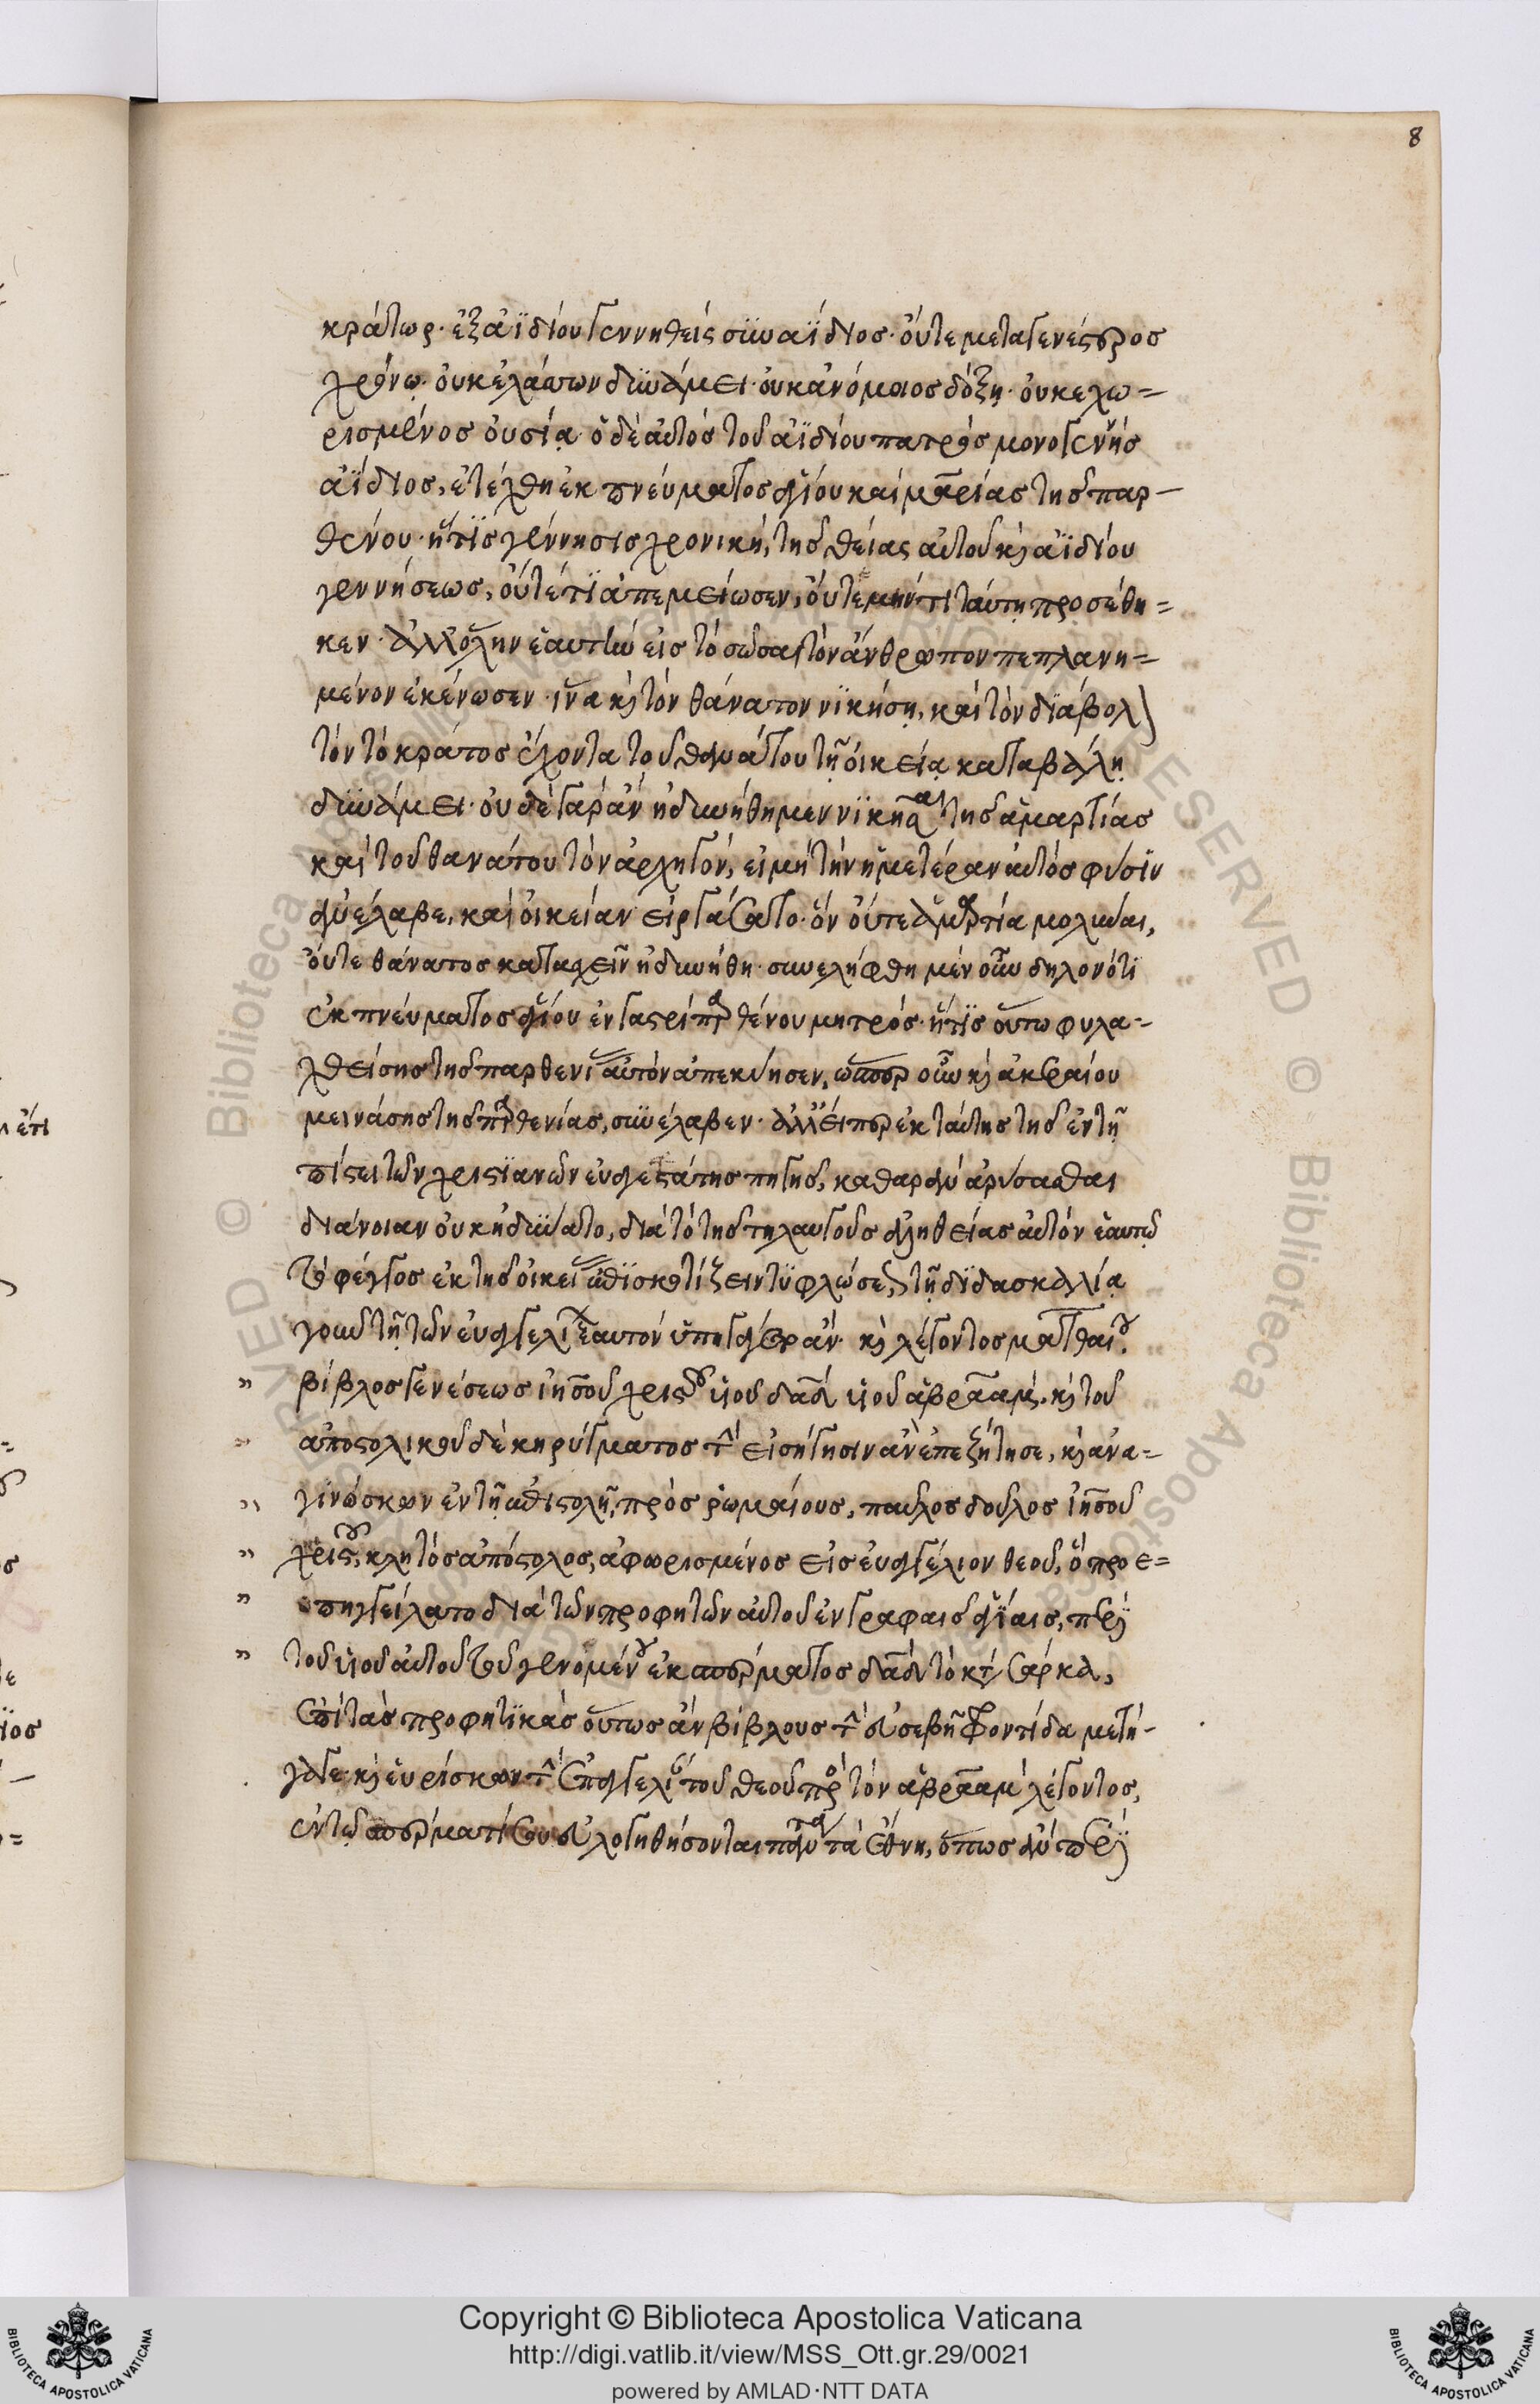 8
κράτωρ· ἐξ ἀϊδίου γεννηθεὶς συναΐδιος· οὔτε μεταγενέστερος
χρόνῳ· οὐκ ἐλάττων δυνάμει· οὐκ ἀνόμοιος δόξῃ· οὐ κεχω=
ρισμένος οὐσίᾳ· ὁ δὲ αὐτὸς τοῦ ἀϊδίου πατρὸς μονογενὴς
ἀΐδιος, ἐτέχθη ἐκ πνεύματος ἁγίου καὶ μαρίας τῆς παρ-
θένου· ἥτις γέννησις χρονικὴ, τῆς θείας αὐτοῦ κὶ ἀϊδίου
γεννήσεως, οὔτέ τι ἀπεμείωσεν, οὔτε μήν τι ταύτῃ προσέθη=
κεν· ἀλλ' ὅλην ἑαυτὴν εἰς τὸ σῶσαι τὸν ἄνθρωπον πεπλανη=
μένον ἐκένωσεν· ἵνα κὶ τὸν θάνατον νικήσῃ, καὶ τὸν διάβολ
τὸν τὸ κράτος ἔχοντα τοῦ θανάτου τῇ οἰκείᾳ καταβάλῃ
δυνάμει· οὐδὲ γὰρ ἂν ἠδυνήθημεν νικῆσαι τῆς ἁμαρτίας
καὶ τοῦ θανάτου τὸν ἀρχηγὸν, εἰ μὴ τὴν ἡμετέραν αὐτὸς φύσιν
ἀνέλαβε, καὶ οἰκείαν εἰργάσατο· ὃν οὔτε ἁμαρτία μολῦναι,
οὔτε θάνατος κατασχεῖν ἠδυνήθη· συνελήφθη μὲν οὖν δηλονότι
ἐκ πνεύματος ἁγίου ἐν γαστρὶ παρθένου μητρός· ἥτις οὕτω φυλα-
χθείσης τῆς παρθενίας αὐτὸν ἀπεκύησεν, ὥσπερ οὖν κὶ ἀκεραίου
μεινάσης τῆς παρθενίας, συνέλαβεν· ἀλλ' εἴπερ ἐκ ταύτης τῆς ἐν τῇ
πίστει τῶν χριστιανῶν εὐαγεστάτης πηγῆς, καθαρὰν ἀρύσασθαι
διάνοιαν οὐκ ἠδύνατο, διὰ τὸ τῆς τηλαυγοῦς ἀληθείας αὐτὸν ἑαυτῷ
τὸ φέγγος ἐκ τῆς οἰκείας ἐπισκοτίζειν τυφλώσεως, τῇ διδασκαλίᾳ
γοῦν τῇ τῶν εὐαγγελίων ἑαυτὸν ὑπήγαγεν ἄν· κὶ λέγοντος ματθαίου.
βίβλος γενέσεως ἰησοῦ χριστοῦ υἱοῦ δαδ υἱοῦ ἀβραάμ, κὶ τοῦ
ἀποστολικοῦ δὲ κηρύγματος τὴν εἰσήγησιν ἂν ἐπεζήτησε, κὶ ἀνα=
γινώσκων ἐν τῇ ἐπιστολῇ, πρὸς ῥωμαίους, παῦλος δοῦλος ἰησοῦ
χριστοῦ, κλητὸς ἀπόστολος, ἀφωρισμένος εἰς εὐαγγέλιον θεοῦ, ὃ προε=
πηγγείλατο διὰ τῶν προφητῶν αὐτοῦ ἐν γραφαῖς ἁγίαις, περὶ
τοῦ υἱοῦ αὐτοῦ τοῦ γενομένου ἐκ σπέρματος δαδ τὸ κατὰ σάρκα,
ἐπὶ τὰς προφητικὰς οὕτως ἂν βίβλους τὴν εὐσεβῆ φροντίδα μετή-
γαγε· κὶ εὑρίσκων τὴν ἐπαγγελίαν τοῦ θεοῦ πρὸς τὸν ἀβραὰμ λέγοντος,
ἐν τῷ σπέρματί σου εὐλογηθήσονται πάντα τὰ ἔθνη, ὅπως ἂν περὶ
Copyright © Biblioteca Apostolica Vaticana
http://digi.vatlib.it/view/MSS_Ott.gr.29/0021
powered by AMLAD·NTT DATA
BIBLIOTECA APOSTOLICA VATICANA
BIBLIOTECA APOSTOLICA VATICANA